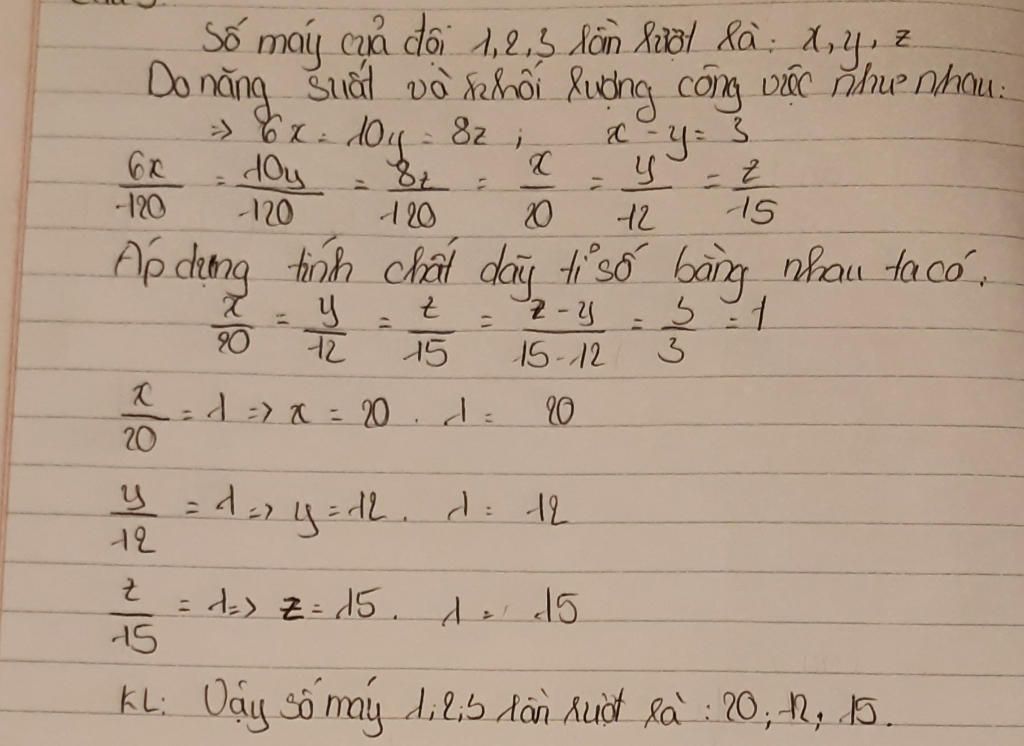 Số máy của đội 1,2,3 lần lượt là: x, y, z
Do năng suất và khối lượng công việc như nhau:
=> 6x = 10y = 8z ; x - y = 3
6x/120 = 10y/120 = 8z/120 = x/20 = y/12 = z/15
Áp dụng tính chất dãy tỉ số bằng nhau ta có.
x/20 = y/12 = z/15 = z-y/15-12 = 3/3 = 1
x/20 = 1 => x = 20 . 1 = 20
y/12 = 1 => y = 12 . 1 = 12
z/15 = 1 => z = 15 . 1 = 15
KL: Vậy số máy 1;2;3 lần lượt là : 20; 12; 15.